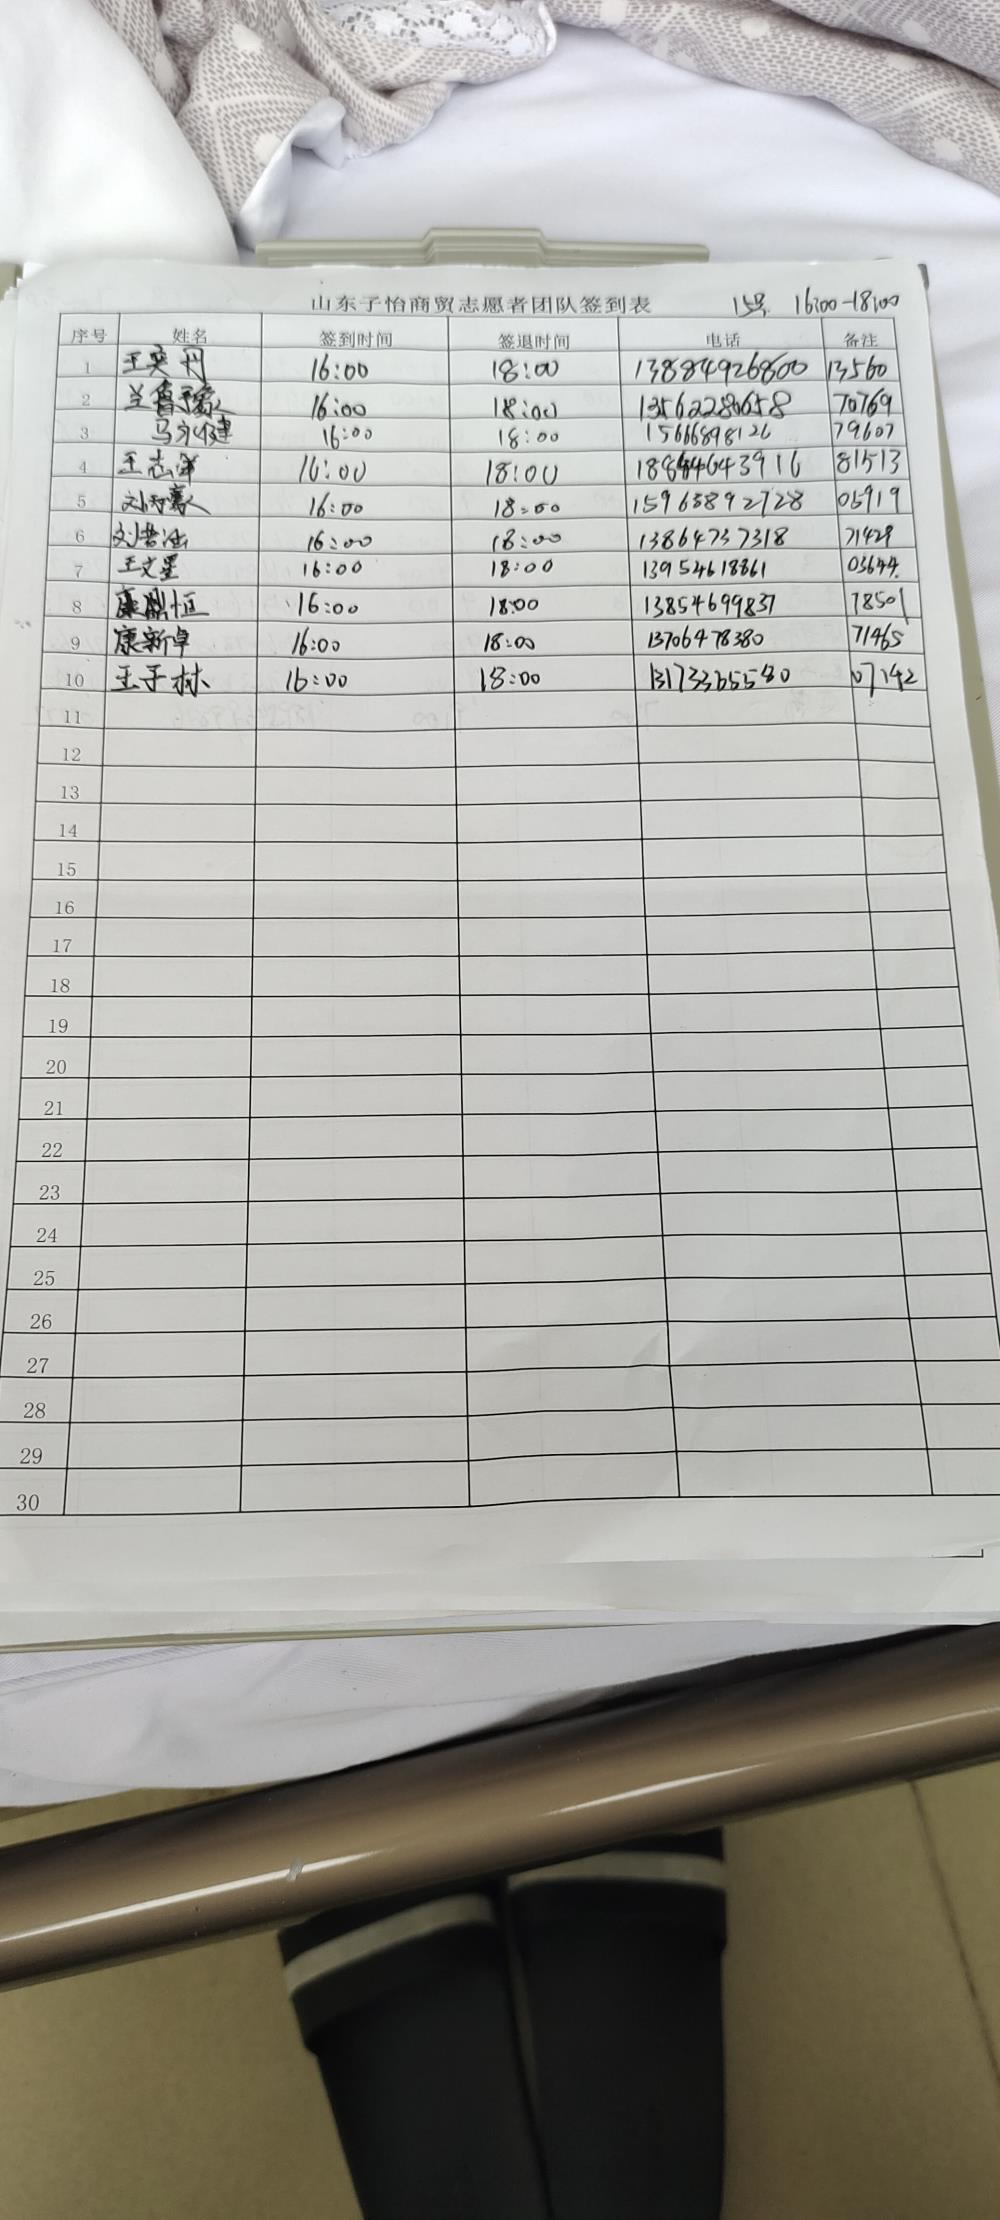 山东子怡商贸志愿者团队签到表 15号 16:00-18:00
序号 姓名 签到时间 签退时间 电话 备注
1 王奕丹 16:00 18:00 13884926800 13560
2 16:00 18:00 13562280658 70769
3 马永健 16:00 18:00 15666898126 79607
4 王志洋 16:00 18:00 81513
5 16:00 18:00 15963892728 05919
6 刘浩涵 16:00 18:00 13864737318 71429
7 王文星 16:00 18:00 13954618861 03644
8 康鼎恒 16:00 18:00 13854699837 78501
9 康新卓 16:00 18:00 13706478380 71465
10 王子林 16:00 18:00 13173365540 07142
11
12
13
14
15
16
17
18
19
20
21
22
23
24
25
26
27
28
29
30